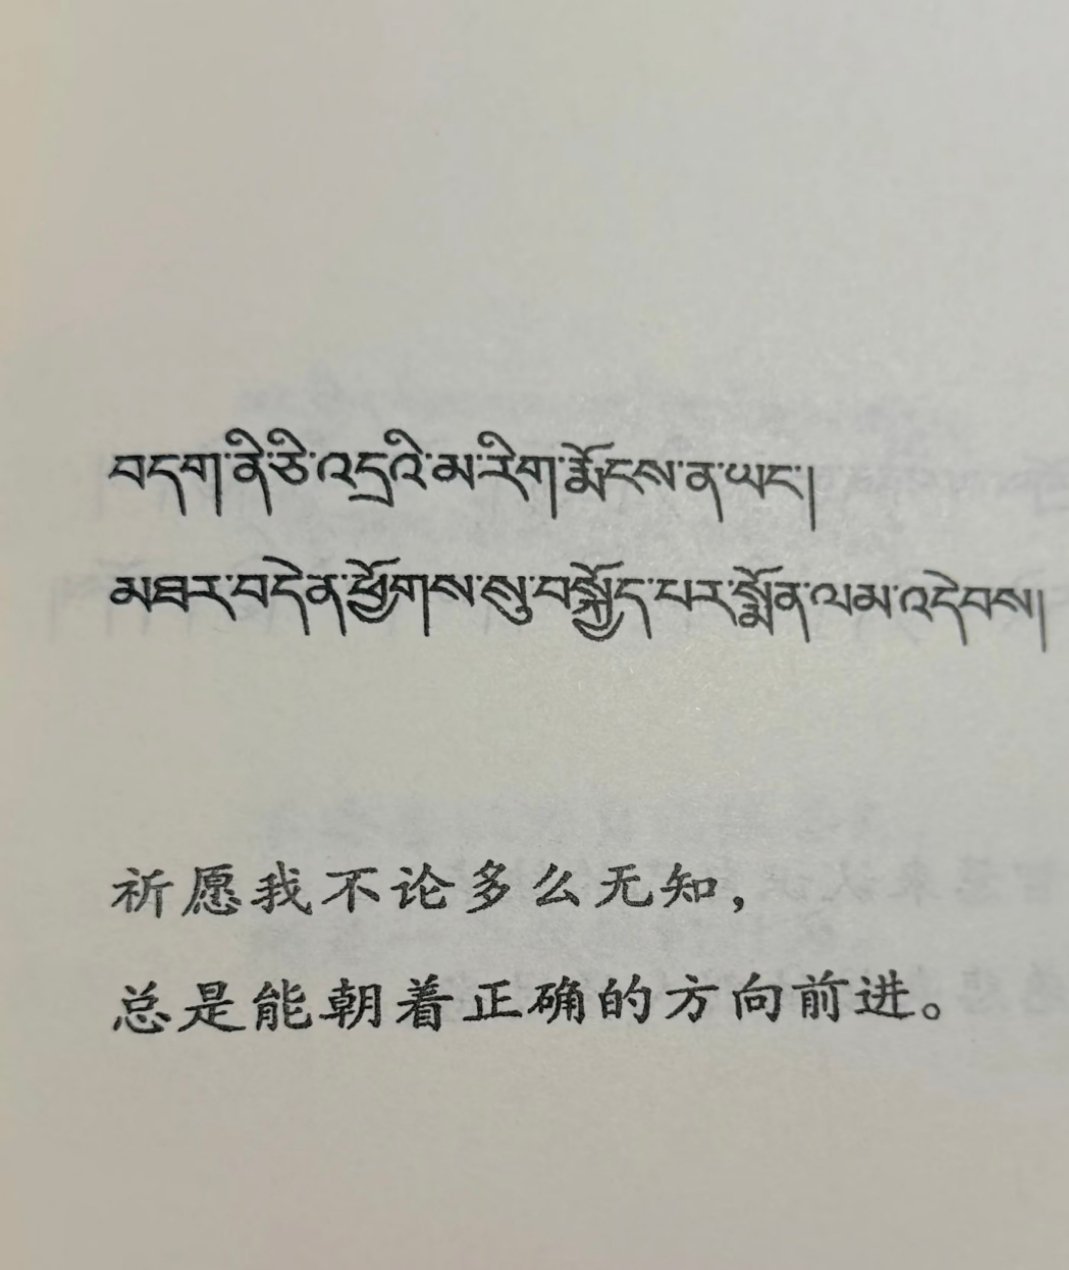 བདག་ནི་ཅི་འདྲའི་མ་རིག་རྨོངས་ན་ཡང་།
མཐར་བདེན་ཕྱོགས་སུ་བསྐྱོད་པར་སྨོན་ལམ་འདེབས།
祈愿我不论多么无知，
总是能朝着正确的方向前进。